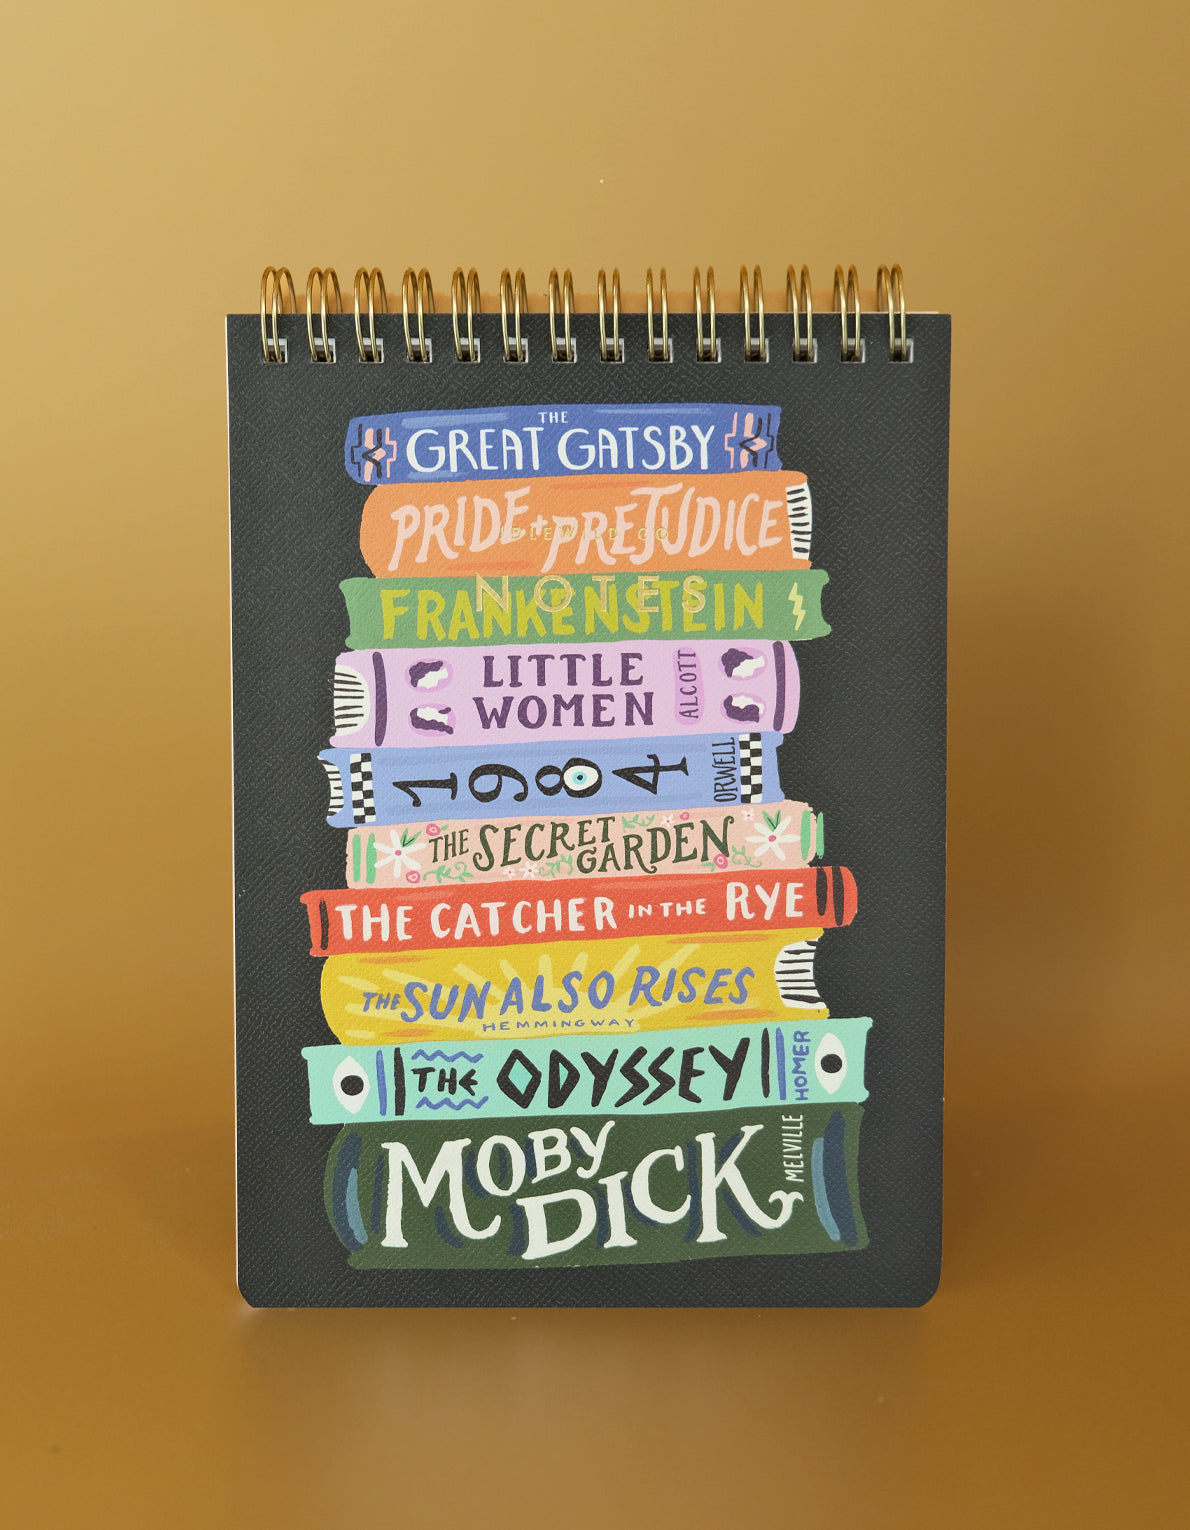 THE
GREAT GATSBY
PRIDE + PREJUDICE
IDLEWILD CO
NOTES
FRANKENSTEIN
LITTLE
WOMEN
ALCOTT
1984
ORWELL
THE SECRET
GARDEN
THE CATCHER IN THE RYE
THE SUN ALSO RISES
HEMMINGWAY
THE ODYSSEY
HOMER
MOBY
DICK
MELVILLE